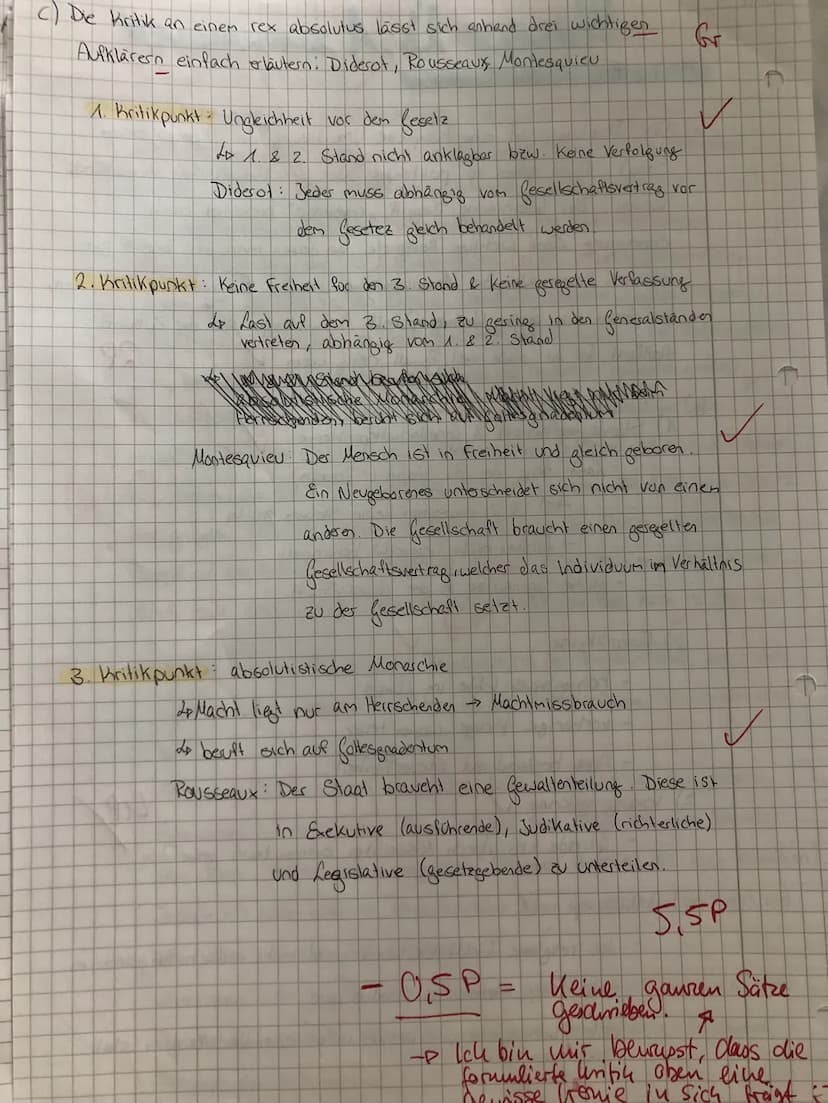 c) Die Kritik an einem rex absolutus lässt sich anhand drei wichtigen
Gr
Aufklärern einfach erläutern: Diderot, Rousseaux, Montesquieu
1. Kritikpunkt: Ungleichheit vor dem Gesetz
↳ 1. & 2. Stand nicht anklagbar bzw. keine Verfolgung
Diderot: Jeder muss abhängig vom Gesellschaftsvertrag vor
dem Gesetez gleich behandelt werden.
2. Kritikpunkt: Keine Freiheit für den 3. Stand & keine geregelte Verfassung
↳ Last auf dem 3. Stand, zu gering in den Generalständen
vertreten, abhängig vom 1. & 2. Stand
Montesquieu: Der Mensch ist in Freiheit und gleich geboren.
Ein Neugeborenes unterscheidet sich nicht von einem
anderen. Die Gesellschaft braucht einen geregelten
Gesellschaftsvertrag, welcher das Individuum im Verhältnis
zu der Gesellschaft setzt.
3. Kritikpunkt: absolutistische Monarchie
↳ Macht liegt nur am Herrschenden → Machtmissbrauch
↳ beruft sich auf Gottesgnadentum
Rousseaux: Der Staat braucht eine Gewaltenteilung. Diese ist
in Exekutive (ausführende), Judikative (richterliche)
und Legislative (gesetzgebende) zu unterteilen.
5,5P
- 0,5P = Keine ganzen Sätze
geschrieben.
→ Ich bin mir bewusst, dass die
formulierte Kritik oben eine
gewisse Ironie in sich trägt :-